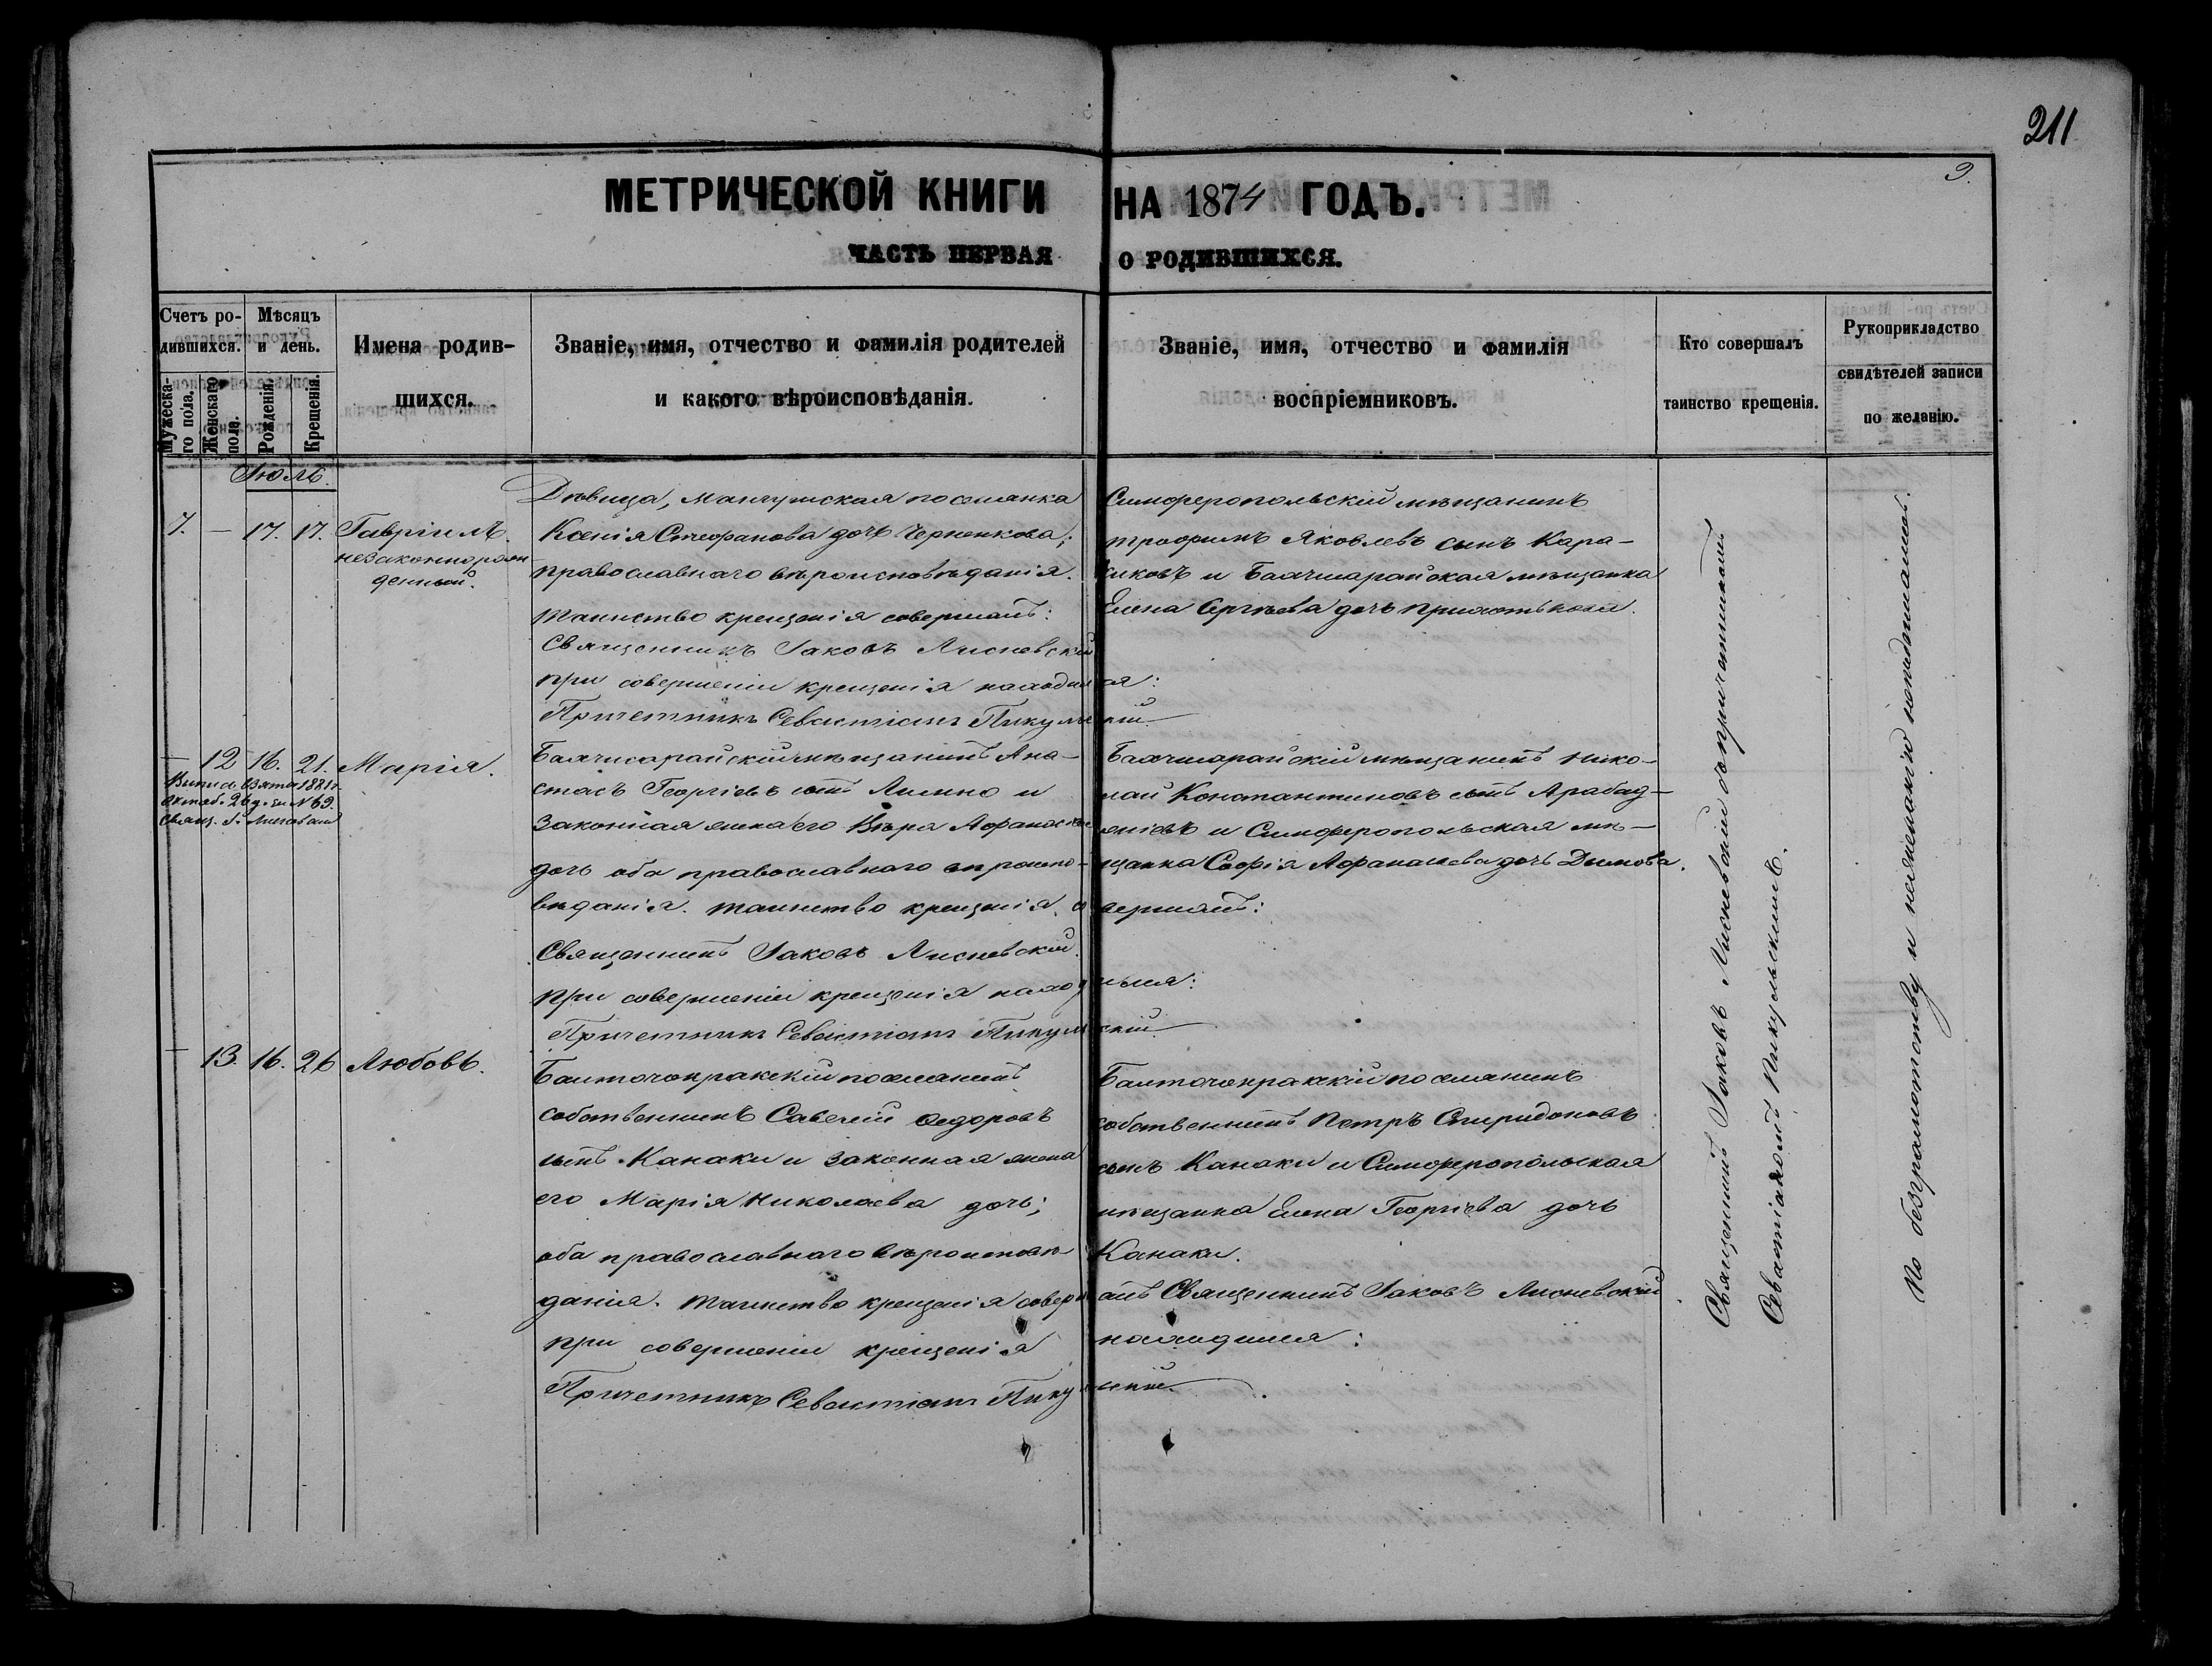 211
9.
МЕТРИЧЕСКОЙ КНИГИ НА 1874 ГОДЪ.
ЧАСТЬ ПЕРВАЯ О РОДИВШИХСЯ.
Счетъ ро-
дившихся.
Мужеска-
го пола.
Женскаго
пола.
Мѣсяцъ
и день.
Рожденія.
Крещенія.
Имена родив-
шихся.
Званіе, имя, отчество и фамилія родителей
и какого вѣроисповѣданія.
Званіе, имя, отчество и фамилія
воспріемниковъ.
Кто совершалъ
таинство крещенія.
Рукоприкладство
свидѣтелей записи
по желанію.
Іюль.
7. — 17. 17. Гавріилъ.
незаконнорож
денный.
Дѣвица, Мангушская поселянка
Ксенія Стефанова дочь Черненкова;
православнаго вѣроисповѣданія.
Таинство крещенія совершалъ:
Священникъ Іаковъ Лисневскій
при совершеніи крещенія находился:
Причетникъ Севастіанъ Пикульскій
Симферопольскій мѣщанинъ
Трофимъ Яковлевъ сынъ Кара-
Бахчисарайская мѣщанка
Елена Сергѣева дочь
— 12 16. 21. Марія.
Выпись взята 1881 г.
октяб. 26 д. за № 69.
Свящ. І. Лисневскій
Бахчисарайскій мѣщанинъ Ана-
стасъ Георгіевъ сынъ и
законная жена его Вѣра Афанасьева
дочь оба православнаго вѣроиспо-
вѣданія. Таинство крещенія совершалъ:
Священникъ Іаковъ Лисневскій.
при совершеніи крещенія находился:
Причетникъ Севастіанъ Пикульскій
Бахчисарайскій мѣщанинъ Нико-
лай Константиновъ сынъ Арабад-
жіевъ и Симферопольская мѣ-
щанка Софія Афанасьева дочь Димова.
— 13. 16. 26 Любовь.
поселянинъ
собственникъ Савелій Ѳедоровъ
сынъ Канаки и законная жена
его Марія Николаева дочь;
оба православнаго вѣроисповѣ-
данія. Таинство крещенія совершалъ Священникъ Іаковъ Лисневскій
при совершеніи крещенія находился:
Причетникъ Севастіанъ Пикульскій
поселянинъ
собственникъ Петръ Спиридоновъ
сынъ Канаки и Симферопольская
мѣщанка Елена Георгіева дочь
Канаки.
Священникъ Іаковъ Лисневскій съ причетникомъ
Севастіаномъ Пикульскимъ.
По безграмотству и нежеланію неподписались.